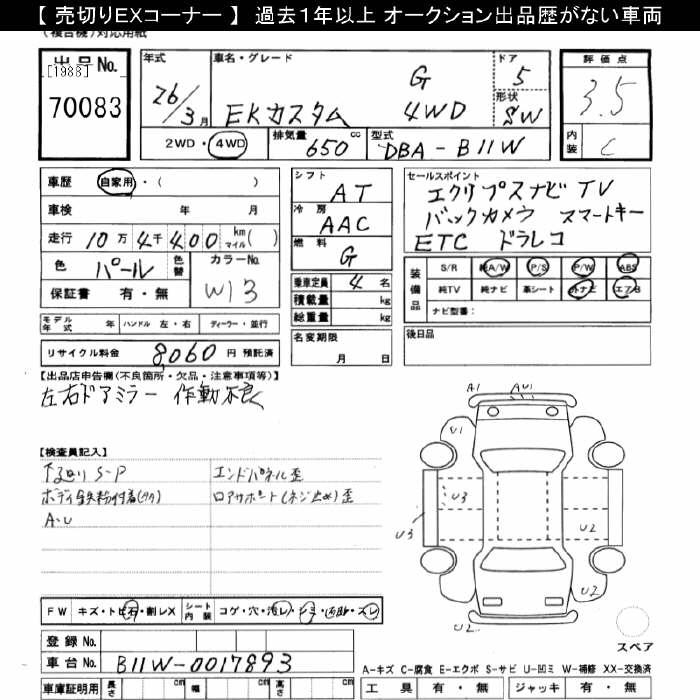 【 売切りEXコーナー 】 過去１年以上 オークション出品歴がない車両
(複合機)対応用紙
出品No.
[1988]
70083
年式
26/3月
車名・グレード
G
EKカスタム 4WD
ドア
5
形状
SW
評価点
3.5
内装
C
2WD・4WD
排気量 650 cc
型式 DBA-B11W
車歴 自家用・( )
車検 年 月
走行 10万4千400 km マイル( )
色 パール 色替
カラーNo. W13
保証書 有・無
シフト AT
冷房 AAC
燃料 G
乗車定員 4 名
積載量 kg
総重量 kg
セールスポイント
エクリプスナビ TV
バックカメラ スマートキー
ETC ドラレコ
装備品
S/R 純A/W P/S P/W ABS
純TV 純ナビ 革シート 外ナビ エアB
ナビ型番:
モデル年式 年 ハンドル 左・右 ディーラー・並行
名変期限
月 日
後日品
リサイクル料金 8,060 円 預託済
【出品店申告欄(不良箇所・欠品・注意事項等)】
左右ドアミラー 作動不良
【検査員記入】
下廻りS-P エンドパネル歪
ボディ鉄粉付着(多) ロアサポート(ネジ止め)歪
A・U
A1 AU1
U1
U3
U3
U2
U2
U2
スペア
FW キズ・トビ石・割レX シート内装 コゲ・穴・汚レ・シミ・
スレ
登録No.
車台No. B11W-0017893
車庫証明用 長さ cm 幅 cm 高さ cm
A-キズ C-腐食 E-エクボ S-サビ U-凹ミ W-補修 XX-交換済
工具 有・無 ジャッキ 有・無